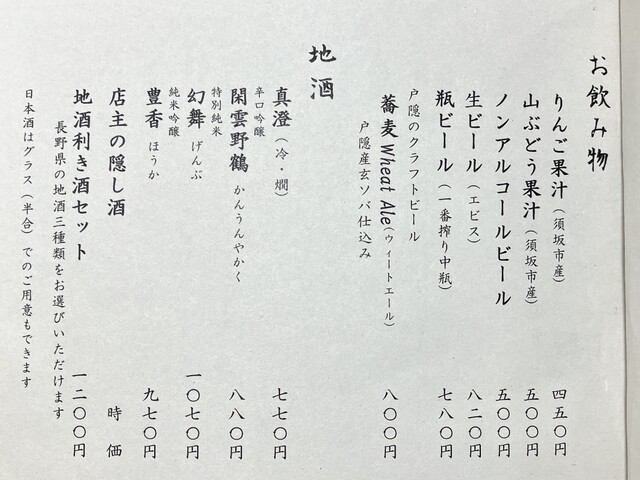 お飲み物
りんご果汁（須坂市産） 四五〇円
山ぶどう果汁（須坂市産） 五〇〇円
ノンアルコールビール 五〇〇円
生ビール（エビス） 八二〇円
瓶ビール（一番搾り中瓶） 七八〇円
戸隠のクラフトビール
蕎麦 Wheat Ale（ウィートエール） 八〇〇円
戸隠産玄ソバ仕込み
地酒
真澄（冷・燗） 七七〇円
辛口吟醸
閑雲野鶴 かんうんやかく 八八〇円
特別純米
幻舞 げんぶ 一〇七〇円
純米吟醸
豊香 ほうか 九七〇円
店主の隠し酒 時価
地酒利き酒セット 一二〇〇円
長野県の地酒三種類をお選びいただけます
日本酒はグラス（半合）でのご用意もできます